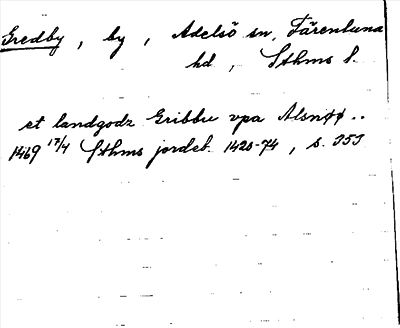 Gredby, by, Adelsö sn, Färentuna
hd, Sthms l.
et landgodz Gribbu vpa Alsnöö..
1469 17/4 Sthms jordeb. 1420-74, s. 353